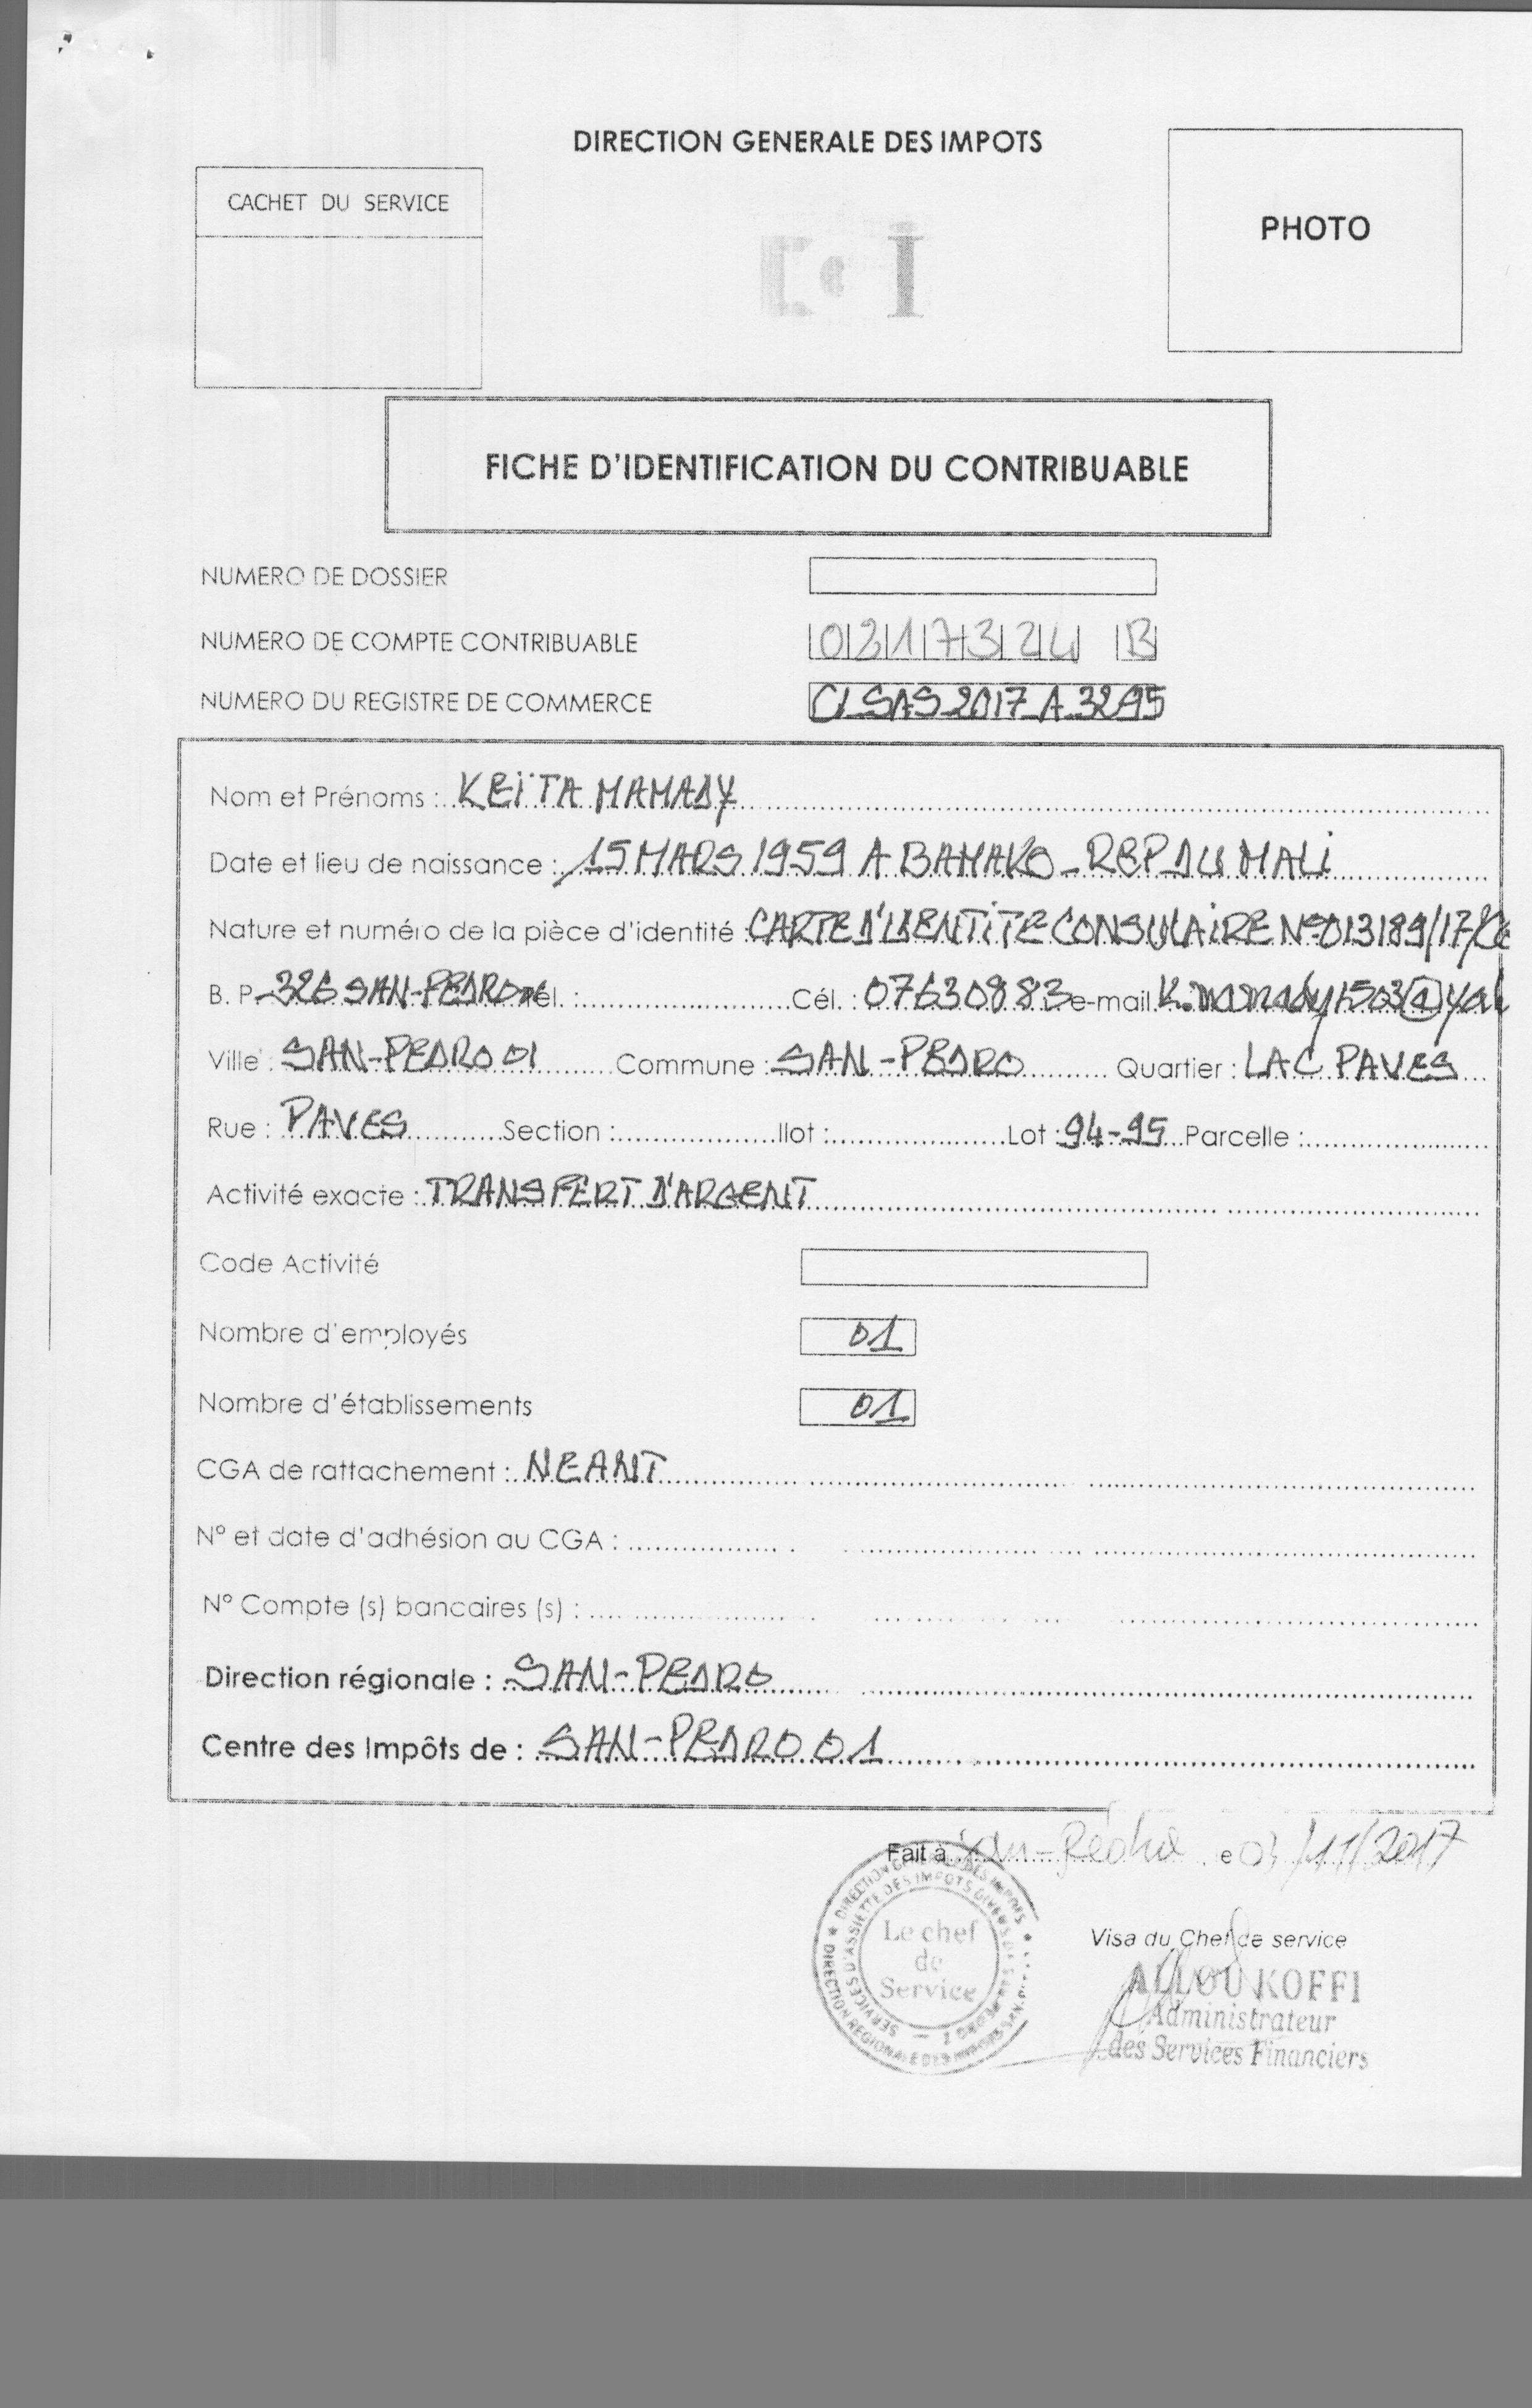 DIRECTION GENERALE DES IMPOTS
CACHET DU SERVICE
PHOTO
FICHE D'IDENTIFICATION DU CONTRIBUABLE
NUMERO DE DOSSIER
NUMERO DE COMPTE CONTRIBUABLE 0217324 B
NUMERO DU REGISTRE DE COMMERCE CI SAS 2017 A 3295
Nom et Prénoms : KEÏTA MAMADY
Date et lieu de naissance : 15 MARS 1959 A BAMAKO - REP DU MALI
Nature et numéro de la pièce d'identité : CARTE D'IDENTITE CONSULAIRE N°013189/17/
B. P 326 SAN-PEDRO Tél. : Cél. : 07630883 e-mail K.mamady1503@yah
Ville : SAN-PEDRO 01 Commune : SAN-PEDRO Quartier : LAC PAVES
Rue : PAVES Section : Ilot : Lot : 94-95 Parcelle :
Activité exacte : TRANSFERT D'ARGENT
Code Activité
Nombre d'employés 01
Nombre d'établissements 01
CGA de rattachement : NEANT
N° et date d'adhésion au CGA :
N° Compte (s) bancaires (s) :
Direction régionale : SAN-PEDRO
Centre des Impôts de : SAN-PEDRO 01
Fait à San-Pédro, e 03/11/2017
Le chef
de
Service
Visa du Chef de service
ALLOU KOFFI
Administrateur
des Services Financiers